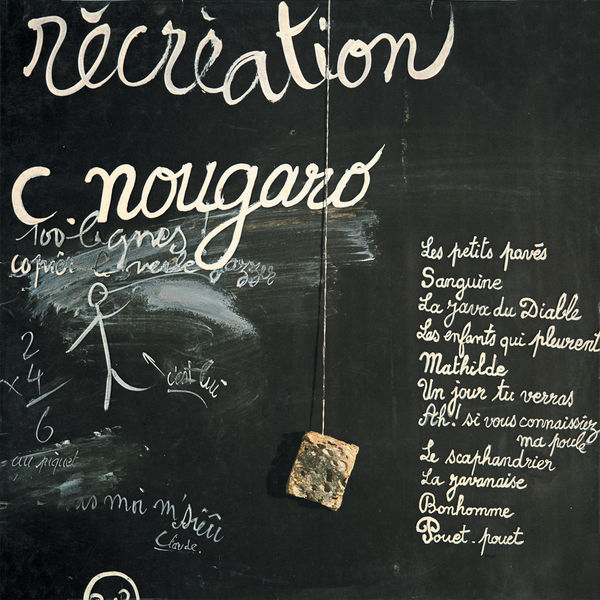 rĕcrèation
c nougaro
100 lignes
copier le verbe jazzer
2
x 4
6
au piquet
c'est lui
as moi m'sieu
Claude.
Les petits pavés
Sanguine
La java du Diable
Les enfants qui pleurent
Mathilde
Un jour tu verras
Ah! si vous connaissiez
ma poule
Le scaphandrier
La javanaise
Bonhomme
Pouet-pouet